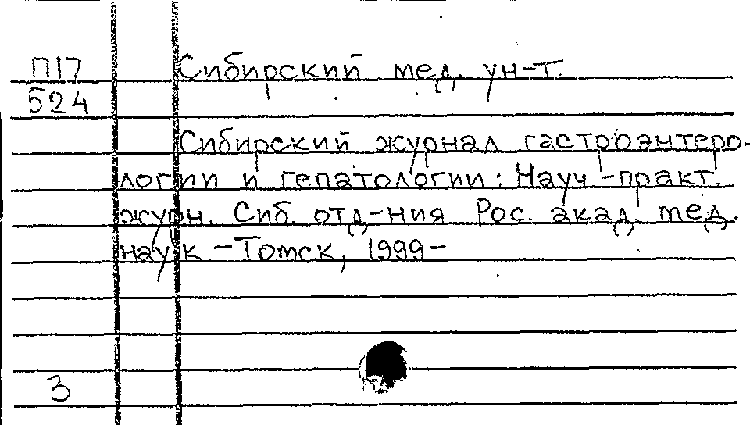 П17 Сибирский мед. ун-т.
524
Сибирский журнал гастроэнтеро-
логии и гепатологии: Науч-практ.
журн. Сиб. отд-ния Рос. акад. мед.
наук - Томск, 1999-
3